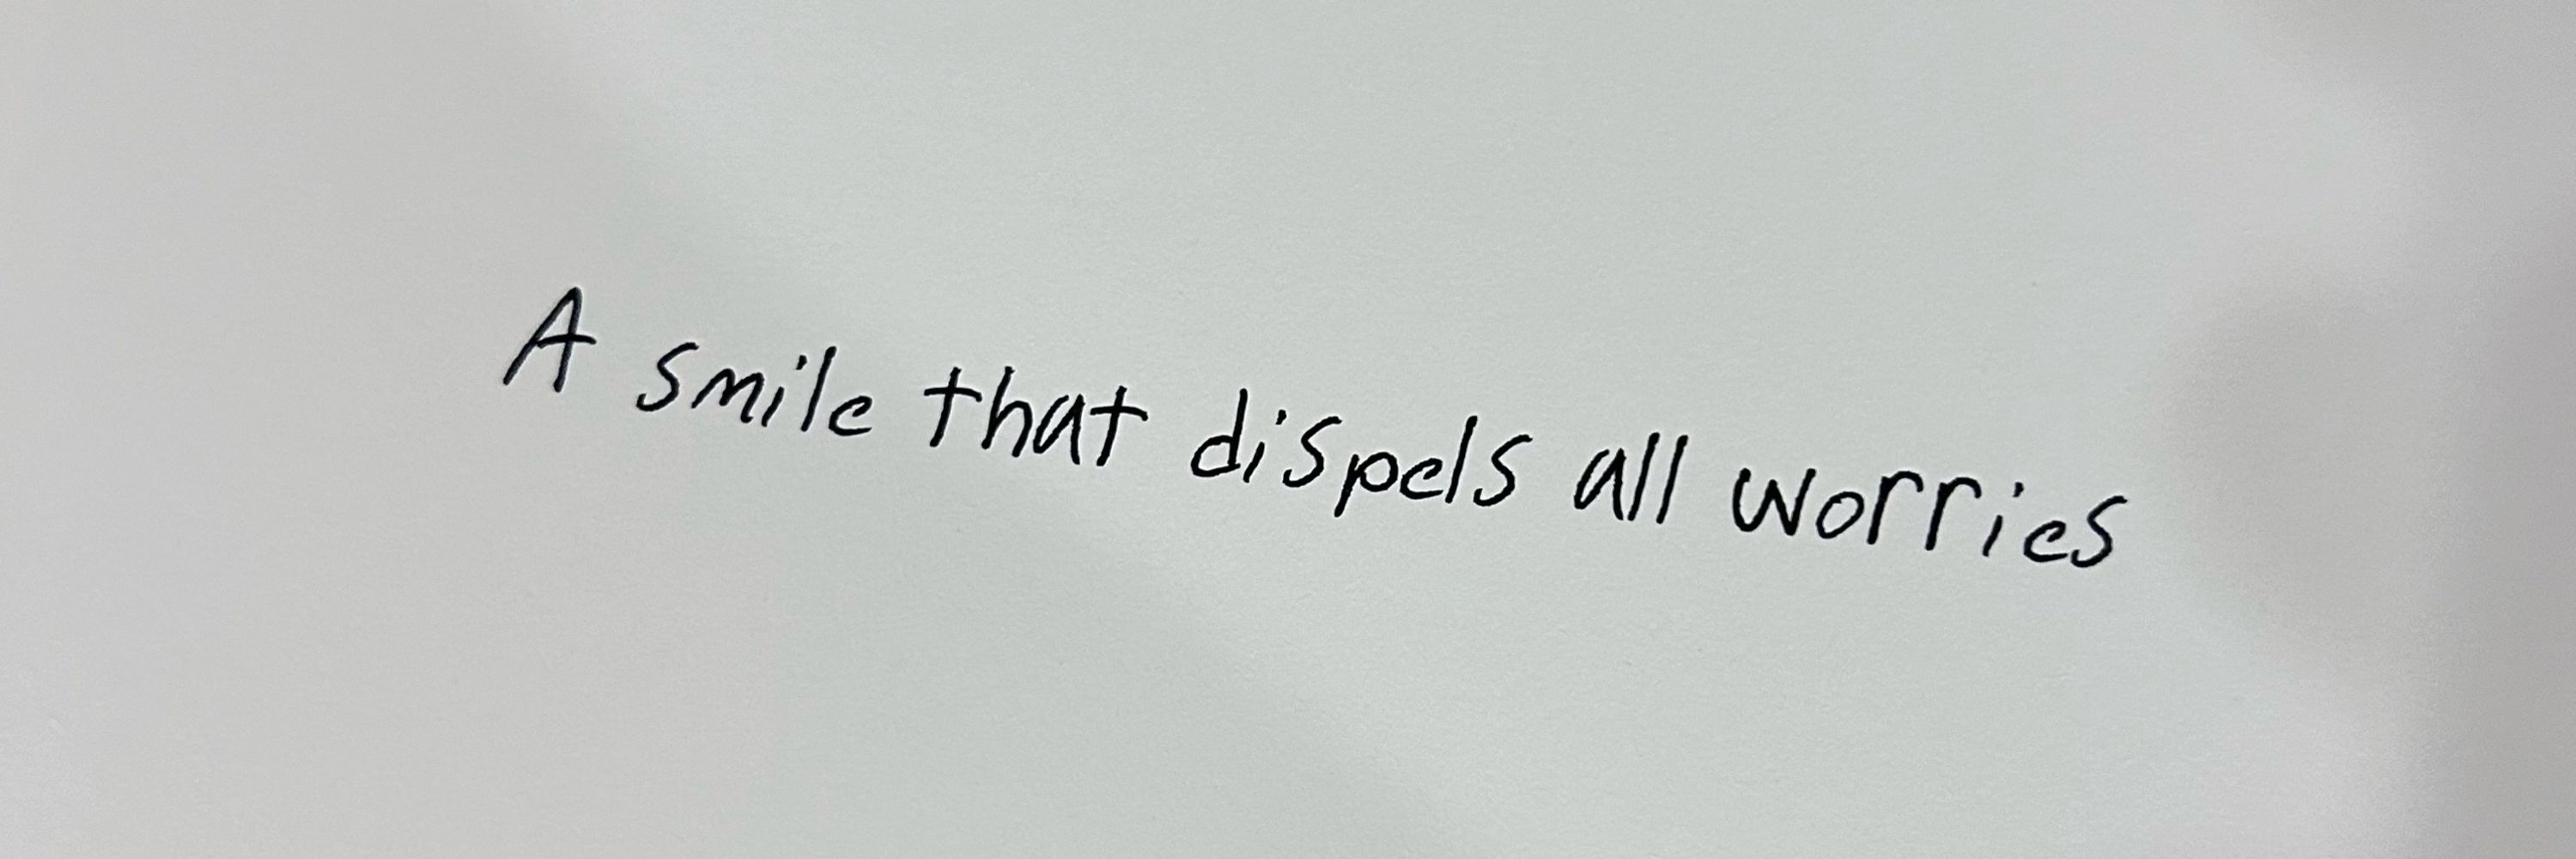 A smile that dispels all worries